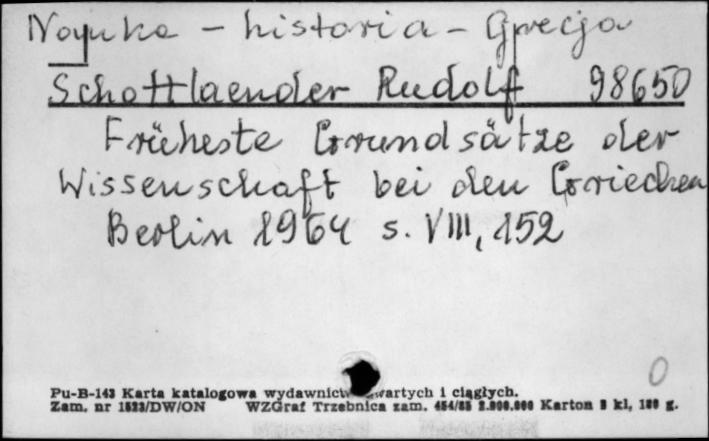 Nauka - historia - Grecja
Schottlaender Rudolf 98650
Früheste Grundsätze der
Wissenschaft bei den Griechen
Berlin 1964 s. VIII, 152
0
Pu-B-143 Karta katalogowa wydawnictw zwartych i ciągłych.
Zam. nr 1523/DW/ON WZGraf Trzebnica zam. 454/85 2.000.000 Karton 3 kl, 180 g.